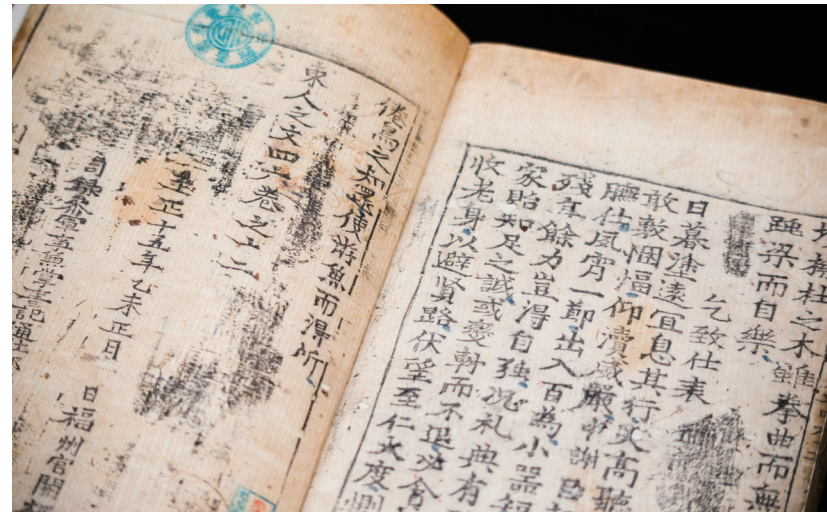 杜之木雖拳曲而無
踵梁而自樂
乞致仕表
日暮塗遠宜息其行天高聽
敢敷悃愊仰瀆威嚴中謝臣
膴仕風宵一節出入百為小器
殘年餘力豈得自强况礼典有
家貽知足之誠或变軒而不退必貪
收老身以避賢路伏望至仁大度惻
倦鳥之知還使游魚而得所
東人之文四六卷之十二
至正十五年乙未正月 日福州官開
司錄叅軍事兼掌書記通